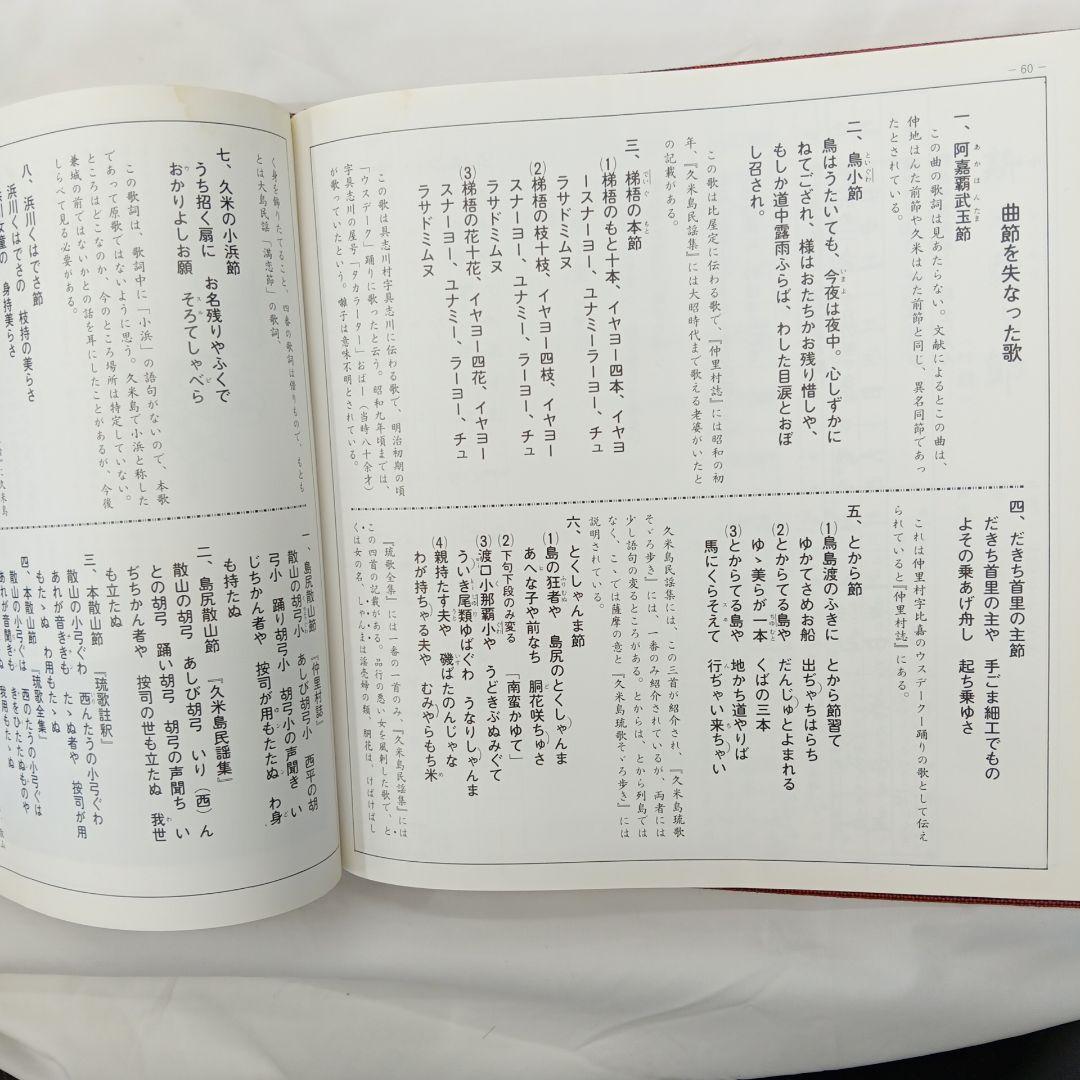 ― 60 ―
曲節を失なった歌
一、阿嘉覇武玉節
あかはんたま
この曲の歌詞は見あたらない。文献によるとこの曲は、
仲地はんた前節や久米はんた前節と同じ、異名同節であっ
たとされている。
二、鳥小節
とぃぐゎ
鳥はうたいても、今夜は夜中。心しずかに
いまよ
ねてござれ、様はおたちかお残り惜しや、
もしか道中露雨ふらば、わした目涙とおぼ
し召され。
この歌は比屋定に伝わる歌で、『仲里村誌』には昭和の初
年、『久米島民謡集』には大昭時代まで歌える老婆がいたと
の記載がある。
三、梯梧の本節
でいぐ もと
(1)梯梧のもと十本、イヤヨー四本、イヤヨ
ースナーヨー、ユナミーラーヨー、チュ
ラサドミムヌ
(2)梯梧の枝十枝、イヤヨー四枝、イヤヨー
スナーヨー、ユナミー、ラーヨー、チュ
ラサドミムヌ
(3)梯梧の花十花、イヤヨー四花、イヤヨー
スナーヨー、ユナミー、ラーヨー、チュ
ラサドミムヌ
この歌は具志川村字具志川に伝わる歌で、明治初期の頃
「ウスデーク」踊りに歌ったと云う。昭和九年頃までは、
字具志川の屋号「タカラーター」おばー（当時八十余才）
が歌っていたという。囃子は意味不明とされている。
四、だきち首里の主節
だきち首里の主や 手ごま細工でもの
よその乗あげ舟し 起ち乗ゆさ
これは仲里村字比嘉のウスデーク踊りの歌として伝え
られていると『仲里村誌』にある。
五、とから節
(1)鳥島渡のふきに とから節習て
ゆかてさめお船 出ぢゃちはらち
(2)とからてる島や だんじゅとよまれる
ゆゝ美らが一本 くばの三本
ちゆむと
(3)とからてる島や 地かち道やりば
馬にくらそえて 行ぢゃい来ちゃい
久米島民謡集には、この三首が紹介され、『久米島琉歌
そゞろ歩き』には、一番のみ紹介されているが、両者には
少し語句の変るところがある。とからは、とから列島では
なく、こゝでは薩摩の意と『久米島琉歌そゞろ歩き』には
説明されている。
六、とくしゃんま節
(1)島の狂者や 島尻のとくしゃんま
ふりむぬ
あへな子や前なち 胴花咲ちゅさ
(2)下句下段のみ変る 「南蛮かゆて」
(3)渡口小那覇小や うどきぶぬみぐて
ういき尾類ゆばぐわ うなりしゃんま
(4)親持たす夫や 磯ばたのんじゃな
わが持ちゃる夫や むみやらもち米
『琉歌全集』には一番の一首のみ、『久米島民謡集』には
この四首の記載がある。品行の悪い女を風刺した歌で、と
くは女の名、しゃんまは謡売婦の類、胴花は、けばけばし
く身を飾りたてること、四番の歌詞は借りもので、もとも
とは大島民謡「満恋節」の歌詞。
七、久米の小浜節
うち招く扇に お名残りやふくで
おかりよしお願 そろてしゃべら
この歌詞は、歌詞中に「小浜」の語句がないので、本歌
であって原歌ではないように思う。久米島で小浜と称した
ところはどこなのか、今のところ場所は特定していない。
兼城の前ではないかとの話を耳にしたことがあるが、今後
しらべて見る必要がある。
八、浜川くはでさ節
浜川くはでさの 枝持の美らさ
身持美らさ
一、島尻散山節 『仲里村誌』
散山の胡弓小 あしび胡弓小 西平の胡
弓小 踊り胡弓小 胡弓小の声聞き い
じちかん者や 按司が用もたたぬ わ身
も持たぬ
二、島尻散山節 『久米島民謡集』
散山の胡弓 あしび胡弓 いり（西）ん
との胡弓 踊い胡弓 胡弓の声聞ち い
ぢちかん者や 按司の世も立たぬ 我世
も立たぬ
三、本散山節 『琉歌註釈』
散山の小弓ぐわ 西んたうの小弓ぐわ
あれが音ききも たゝぬ者や 按司が用
もたゝぬ わ用もたゝぬ
四、本散山節 『琉歌全集』